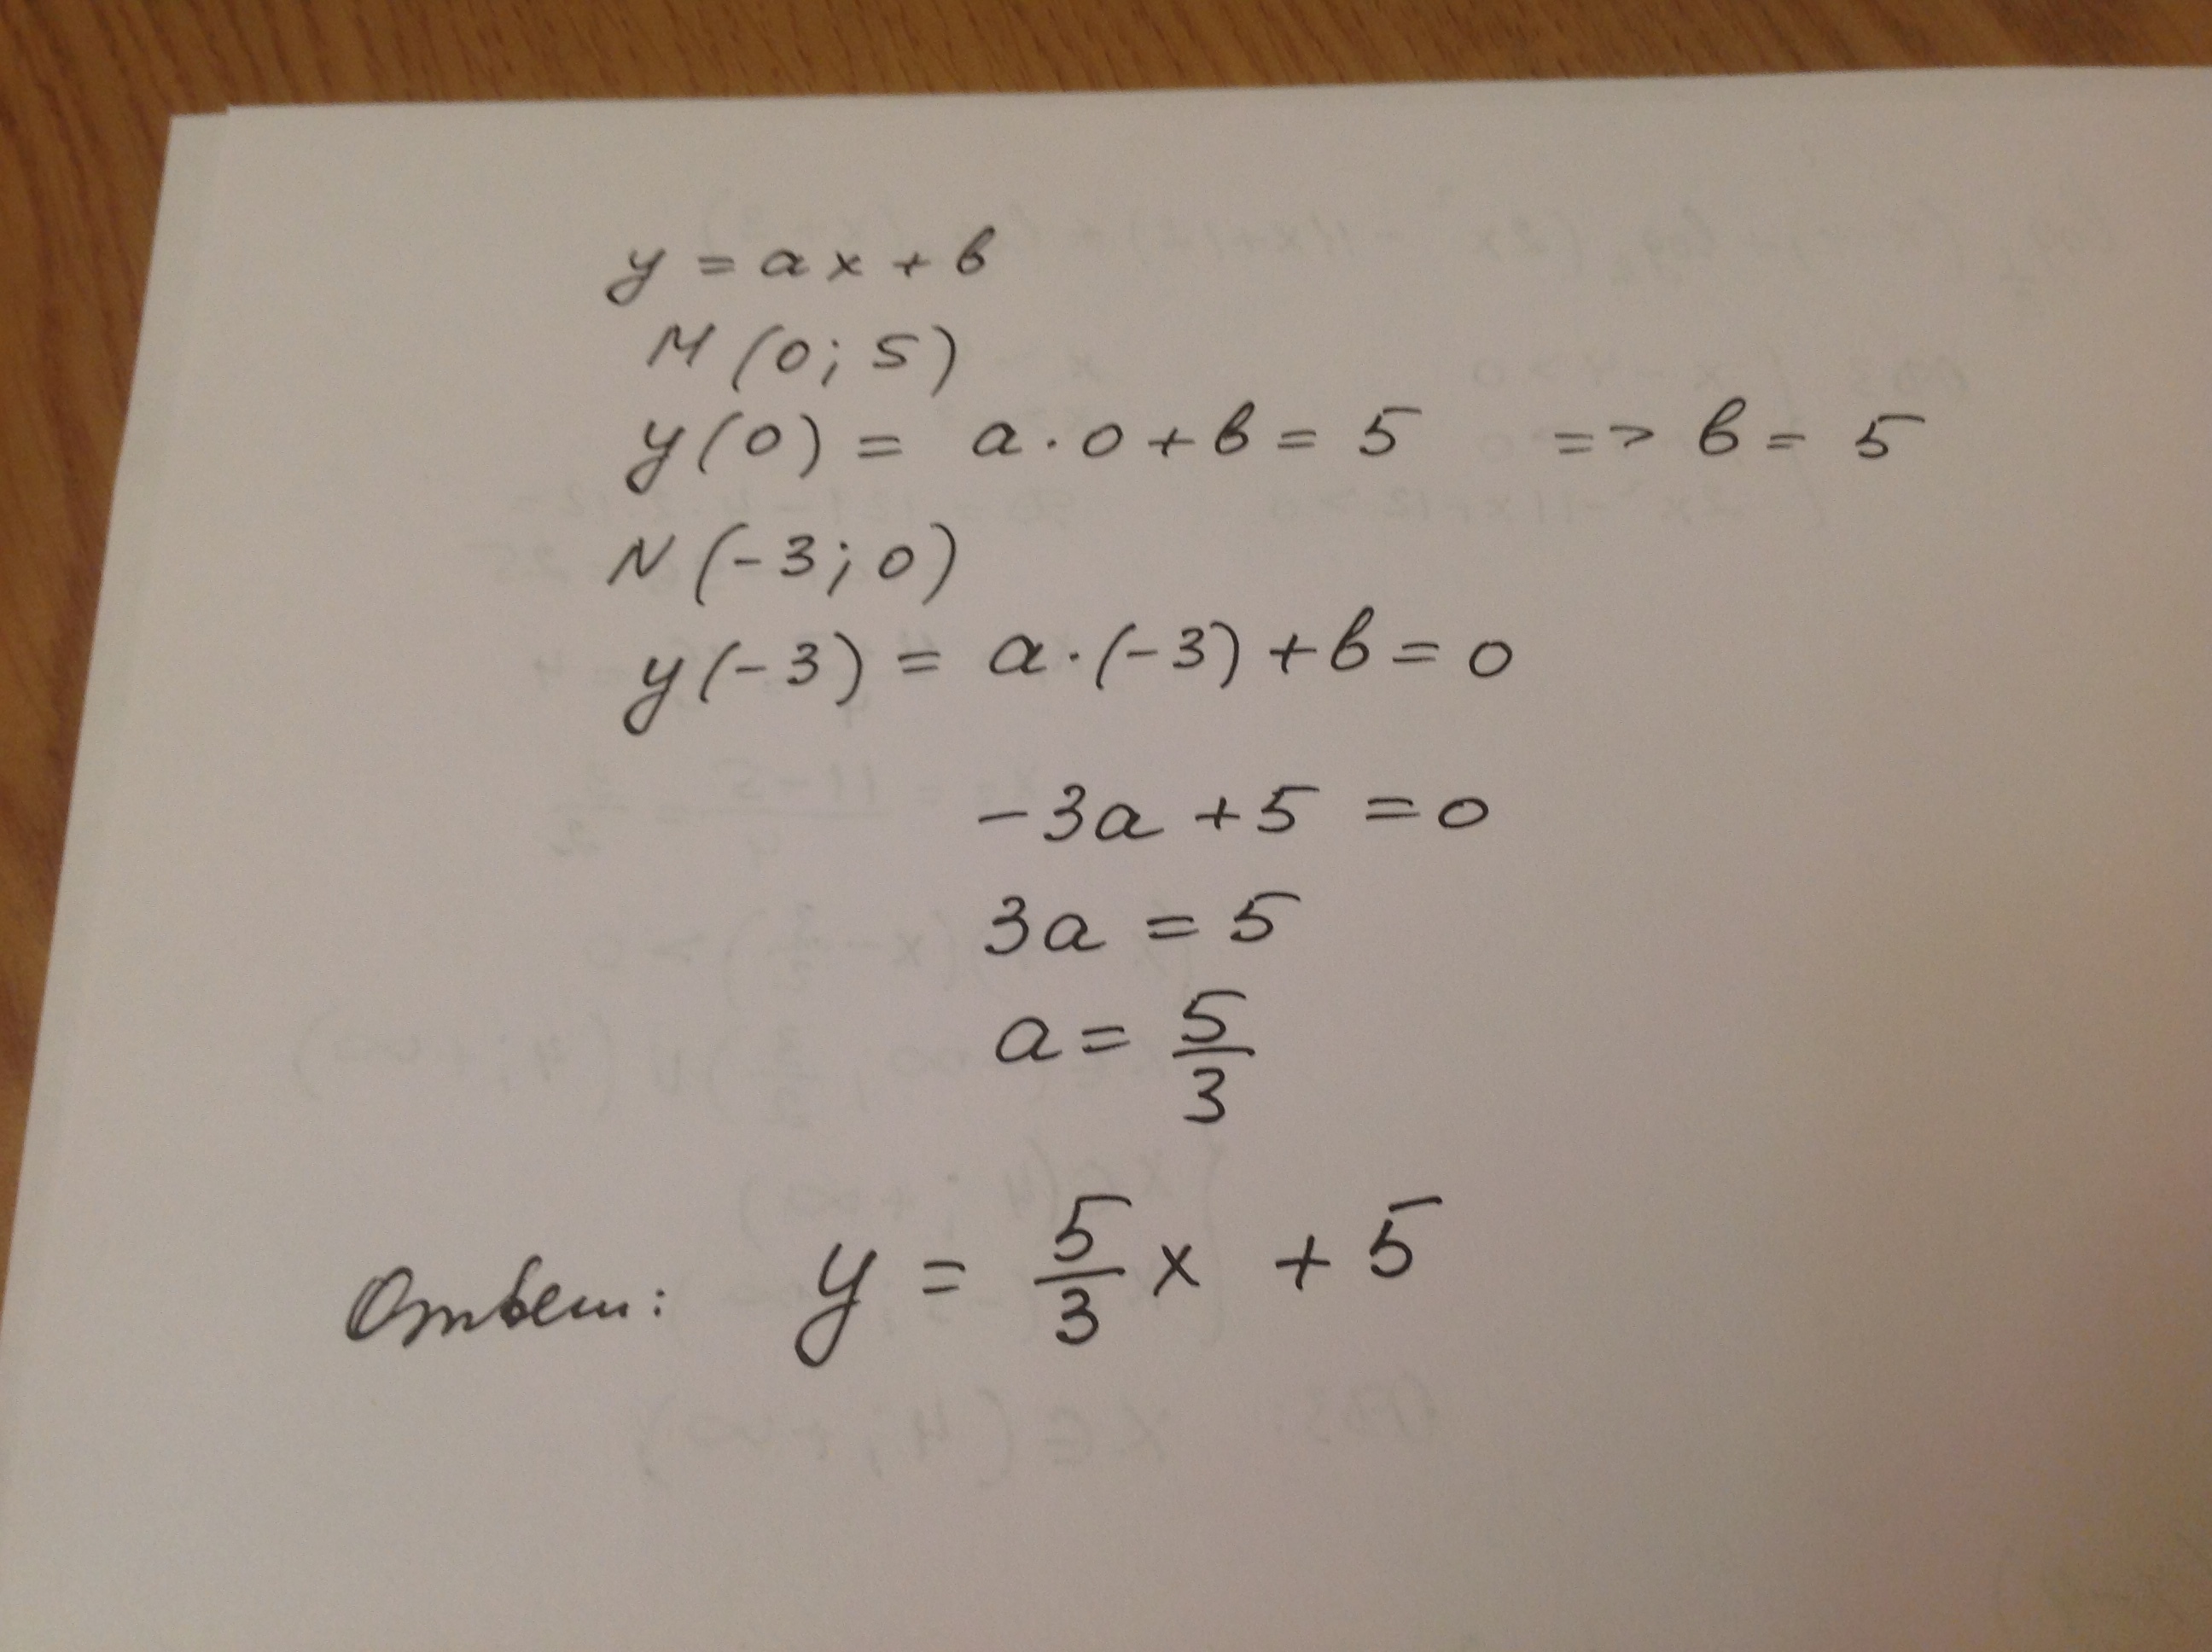 y = ax + b
M(0; 5)
y(0) = a · 0 + b = 5 => b = 5
N(-3; 0)
y(-3) = a · (-3) + b = 0
-3a + 5 = 0
3a = 5
a = 5/3
Ответ: y = 5/3 x + 5